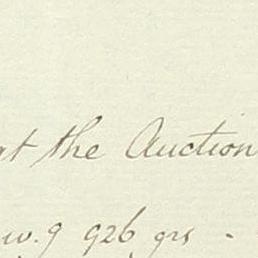 at the Auction
w. 9 926 grs -